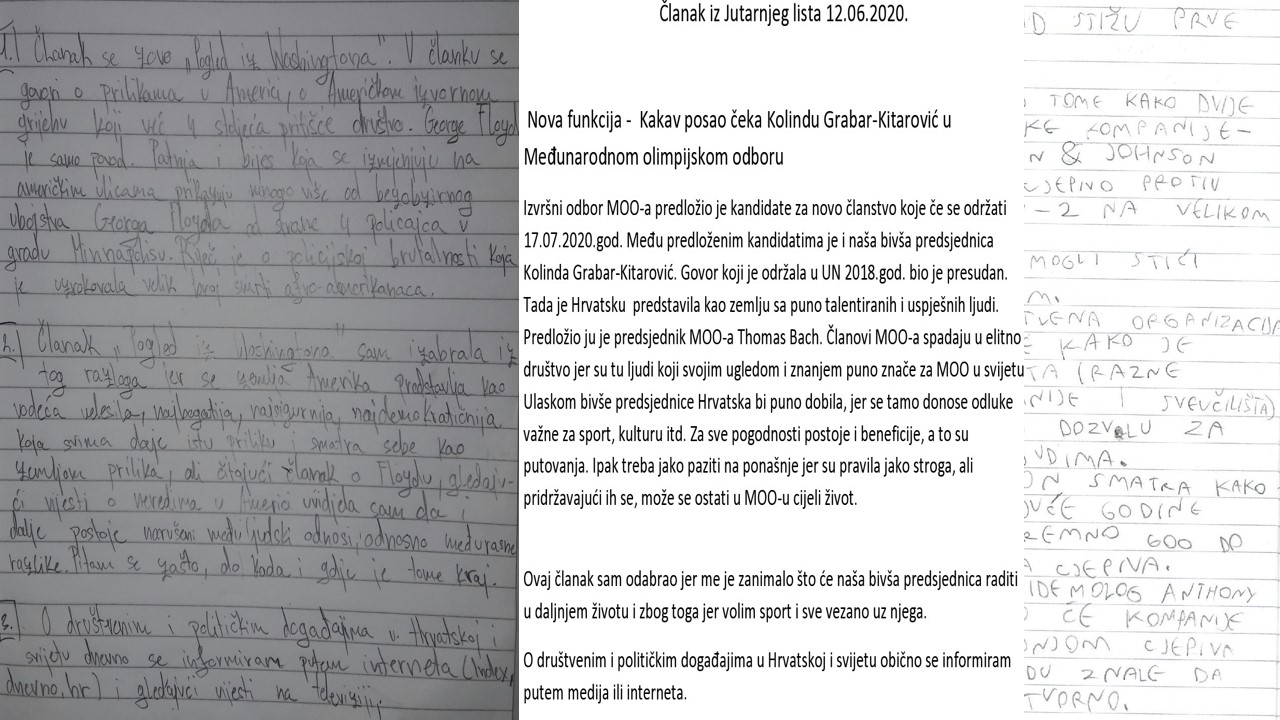 1. Članak se zove „Pogled iz Washingtona". V članku se
govori o prilikama u Americi, o Američkom izvornom
grijehu koji već 4 stoljeća pritišče društvo. George Floyd
je samo povod. Patnja i bijes koja se izražavaju na
američkim ulicama prikazuju mnogo više od bezobzirnog
ubojstva Georga Floyda od strane policajca u
gradu Minnapolisu. Riječ je o policijskoj brutalnosti koja
je uzrokovala velik broj smrti afro-amerikanaca.
2. Članak "Pogled iz Washingtona" sam izabrala iz
tog razloga jer se zemlja Amerika predstavlja kao
vodeća velesila, najbogatija, najsigurnija, najdemokratičnija
koja svima daje istu priliku i smatra sebe kao
zemljom prilika, ali čitajući članak o Floydu, gledaju-
ći vijesti o neredima u Americi uvidjela sam da i
dalje postoje narušeni međuljudski odnosi, odnosno međurasne
razlike. Pitam se zašto, do kada i gdje je tome kraj.
3. O društvenim i političkim događajima u Hrvatskoj i
svijetu dnevno se informiram putem interneta (Index,
dnevno.hr) i gledajući vijesti na televiziji
Članak iz Jutarnjeg lista 12.06.2020.
Nova funkcija - Kakav posao čeka Kolindu Grabar-Kitarović u
Međunarodnom olimpijskom odboru
Izvršni odbor MOO-a predložio je kandidate za novo članstvo koje če se održati
17.07.2020.god. Među predloženim kandidatima je i naša bivša predsjednica
Kolinda Grabar-Kitarović. Govor koji je održala u UN 2018.god. bio je presudan.
Tada je Hrvatsku predstavila kao zemlju sa puno talentiranih i uspješnih ljudi.
Predložio ju je predsjednik MOO-a Thomas Bach. Članovi MOO-a spadaju u elitno
društvo jer su tu ljudi koji svojim ugledom i znanjem puno znače za MOO u svijetu
Ulaskom bivše predsjednice Hrvatska bi puno dobila, jer se tamo donose odluke
važne za sport, kulturu itd. Za sve pogodnosti postoje i beneficije, a to su
putovanja. Ipak treba jako paziti na ponašnje jer su pravila jako stroga, ali
pridržavajući ih se, može se ostati u MOO-u cijeli život.
Ovaj članak sam odabrao jer me je zanimalo što će naša bivša predsjednica raditi
u daljnjem životu i zbog toga jer volim sport i sve vezano uz njega.
O društvenim i političkim događajima u Hrvatskoj i svijetu obično se informiram
putem medija ili interneta.
D STIŽU PRVE
TOME KAKO DVIJE
KE KOMPANIJE-
N & JOHNSON
CJEPIVO PROTIV
-2 NA VELIKOM
MOGLI STIĆI
M.
TVENA ORGANIZACIJA
E KAKO JE
TA (RAZNE
NIJE I SVEUČILIŠTA)
DOZVOLU ZA
UDIMA.
ON SMATRA KAKO
UĆE GODINE
REMNO 600 DO
A CJEPIVA.
IDEMOLOG ANTHONY
O ĆE KOMPANIJE
NJOM CJEPIVA
DU ZNALE DA
TVORNO.